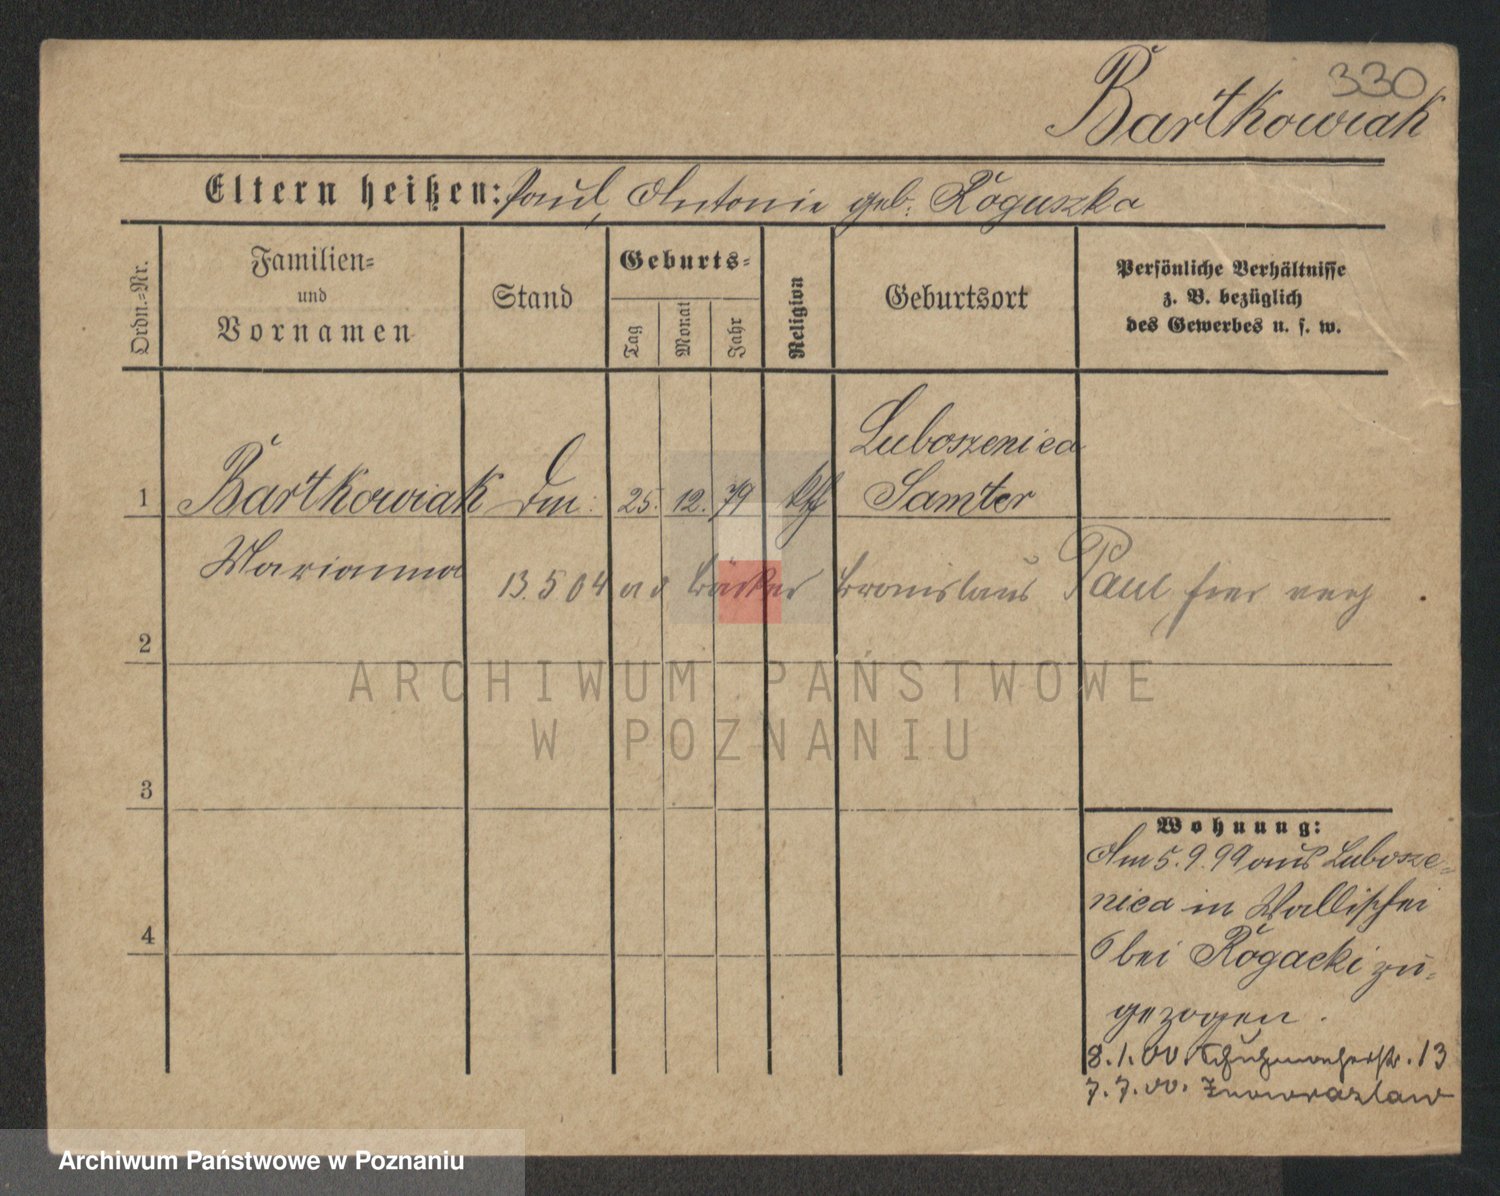 330
Bartkowiak
Eltern heißen: Paul, Antonie geb. Roguszka
Ordn.=Nr.
Familien=
und
Vornamen
Stand
Geburts=
Tag
Monat
Jahr
Religion
Geburtsort
Persönliche Verhältnisse
z. B. bezüglich
des Gewerbes u. s. w.
1 Bartkowiak 25. 12. 79 kth Luboszenica
Samter
Marianna
13.5 04 Bäcker Bronislaus Paul hier
2
ARCHIWUM PAŃSTWOWE
W POZNANIU
3
4
Wohnung:
Am 5.9.99 aus Lubosze=
nica in Wallischei
6 bei Rogacki zu=
gezogen.
8.1.00. Schuhmacherstr. 13
7.7.00. Inowrazlaw
Archiwum Państwowe w Poznaniu